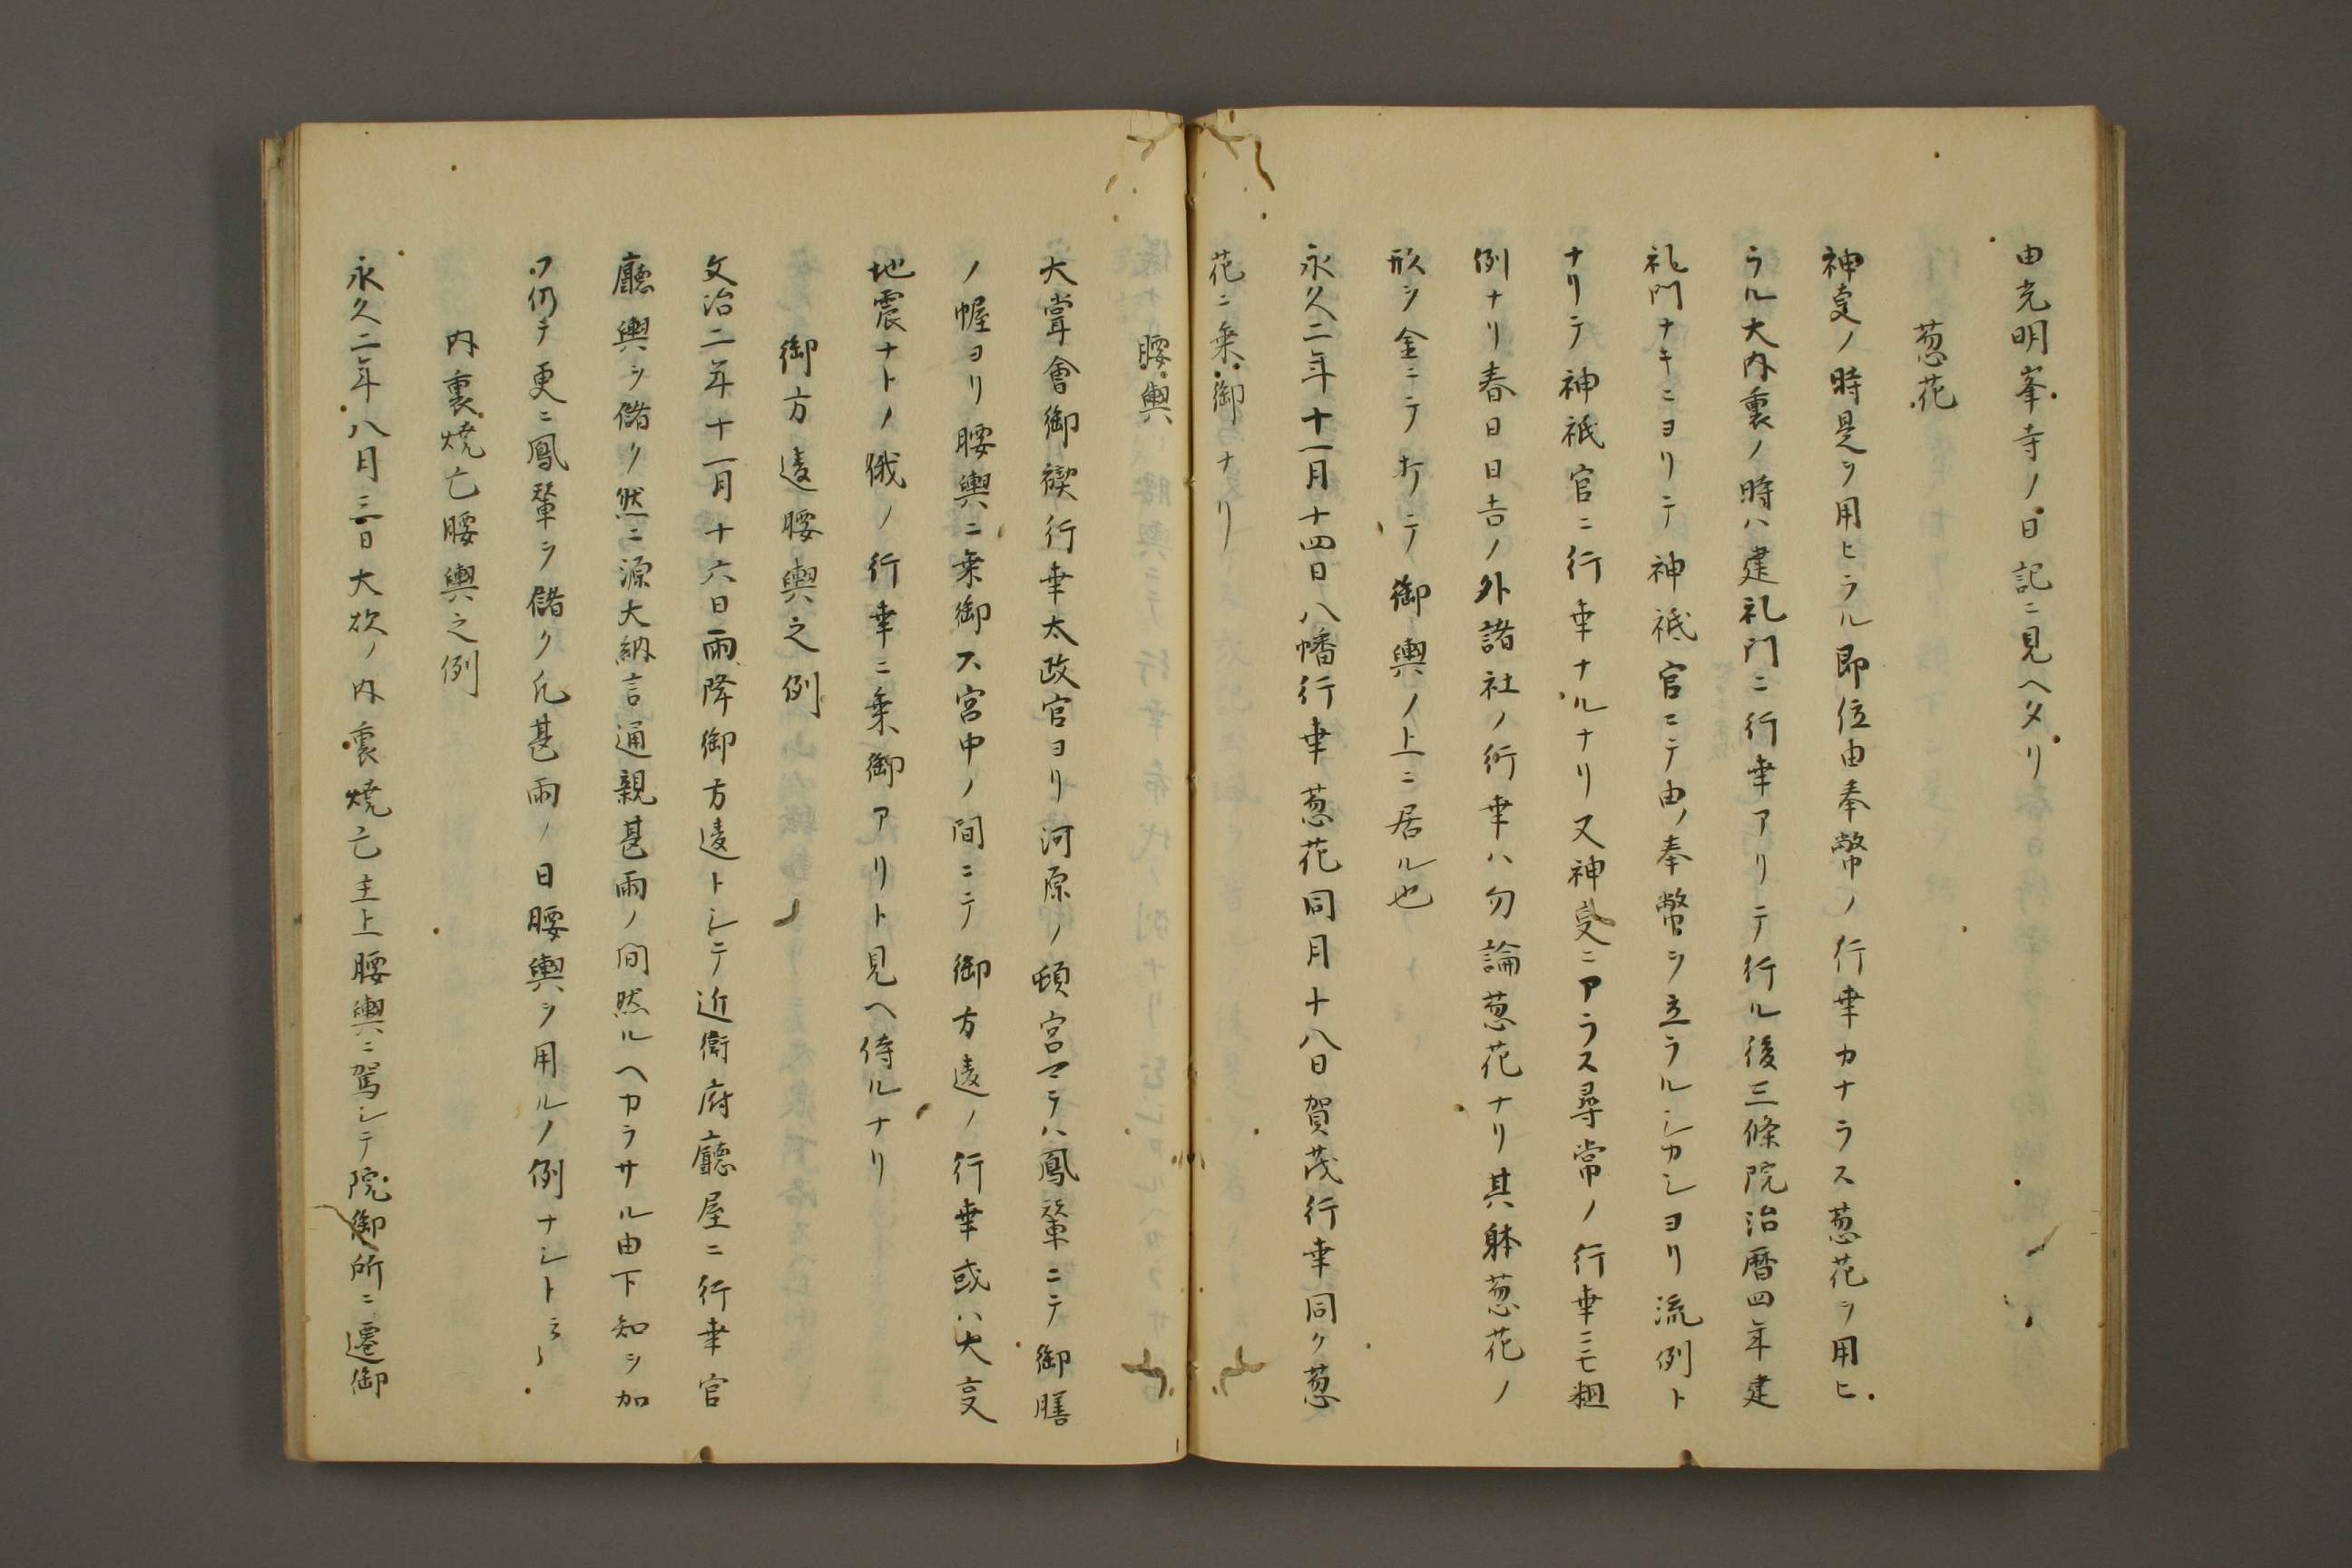 由光明峯寺ノ日記ニ見ヘタリ
葱花
神事ノ時是ヲ用ヒラル即位由奉幣ノ行幸カナラス葱花ヲ用ヒ
ラル大内裏ノ時ハ建礼門ニ行幸アリテ行ル後三條院治暦四年建
礼門ナキニヨリテ神祇官ニテ由ノ奉幣ヲ立ラルシカシヨリ流例ト
ナリテ神祇官ニ行幸ナルナリ又神事ニアラス尋常ノ行幸ニモ粗
例ナリ春日日吉ノ外諸社ノ行幸ハ勿論葱花ナリ其躰葱花ノ
形ヲ金ニテ打テ御輿ノ上ニ居ル也
永久二年十一月十四日八幡行幸葱花同月十八日賀茂行幸同ク葱
花ニ乗御ナリ
腰輿
大嘗會御禊行幸太政官ヨリ河原ノ頓宮マテハ鳳輦ニテ御膳
ノ幄ヨリ腰輿ニ乗御ス宮中ノ間ニテ御方違ノ行幸或ハ大事
地震ナトノ俄ノ行幸ニ乗御アリト見ヘ侍ルナリ
御方違腰輿之例
文治二年十一月十六日雨降御方違トシテ近衛府廳屋ニ行幸官
廳輿ヲ儲ク然ニ源大納言通親甚雨ノ間然ルヘカラサル由下知ヲ加
フ仍テ更ニ鳳輦ヲ儲ク凡甚雨ノ日腰輿ヲ用ルノ例ナシト云々
内裏焼亡腰輿之例
永久二年八月三日大炊ノ内裏焼亡主上腰輿ニ駕シテ院御所ニ遷御